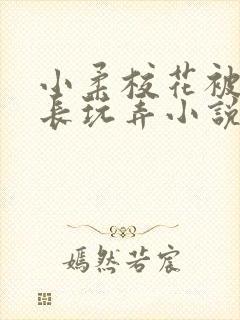 小柔校花被
长玩弄小說
嫣然若宸